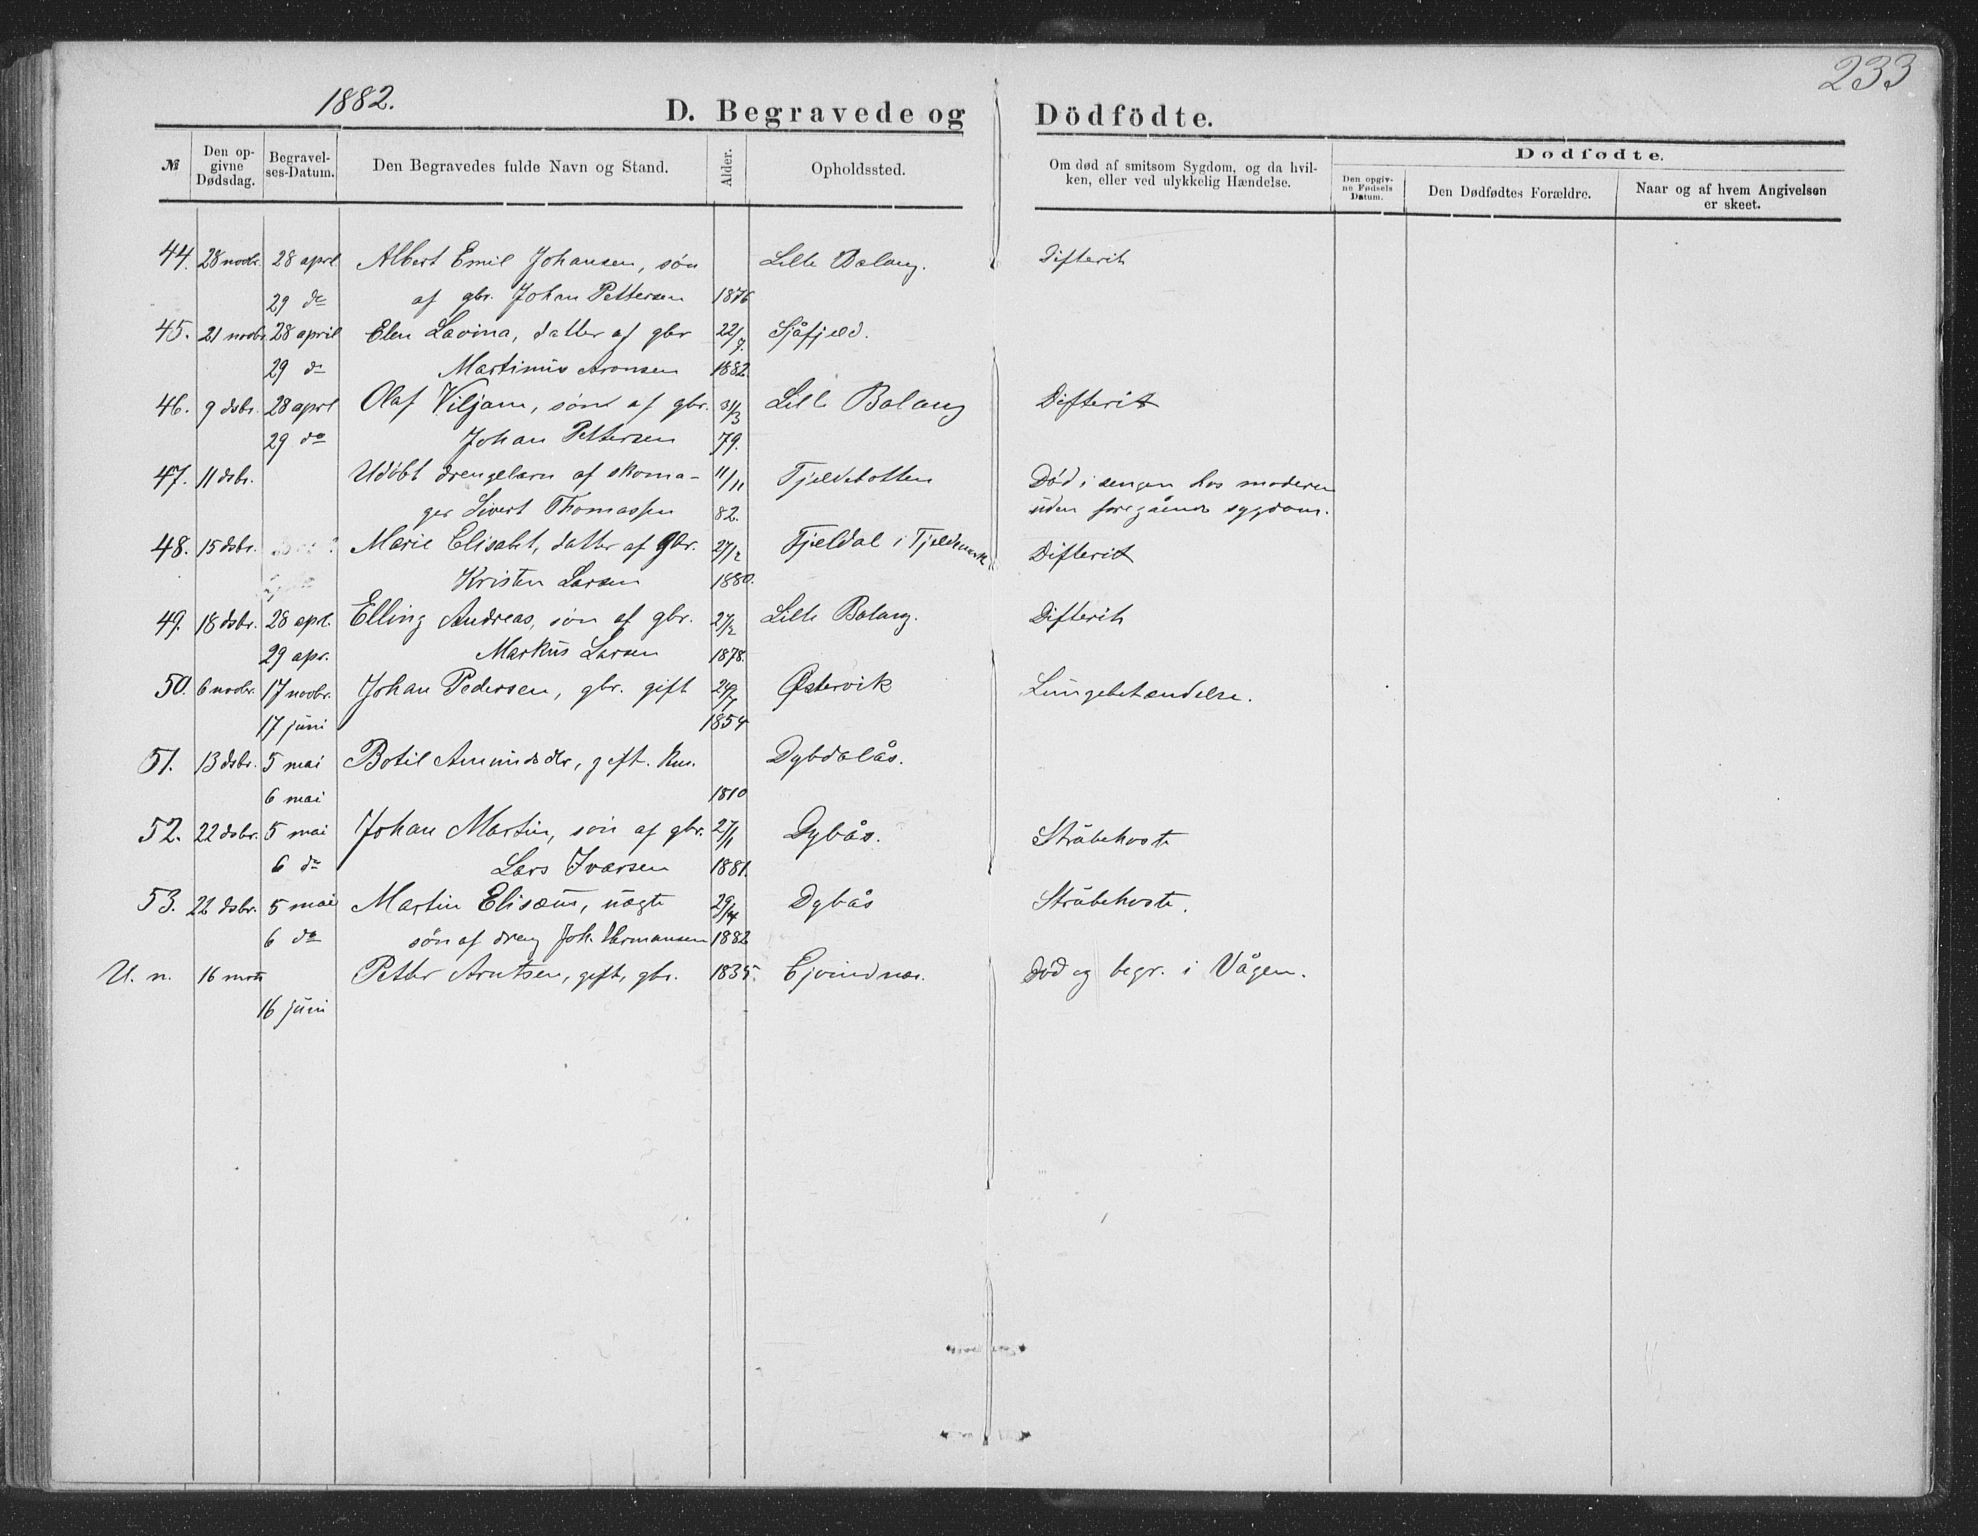 233
1882.
D. Begravede og Dödfödte.
№
Den opgivne Dødsdag.
Begravelses-Datum.
Den Begravedes fulde Navn og Stand.
Alder.
Opholdssted.
Om død af smitsom Sygdom, og da hvilken, eller ved ulykkelig Hændelse.
Dødfødte.
Den opgivne Fødsels Datum.
Den Dødfødtes Forældre.
Naar og af hvem Angivelsen er skeet.
44. 28 novbr. 28 aprl Albert Emil Johansen, søn Lille Balang. Difterit
29 do af gbr. Johan Pettersen 1876
45. 21 novbr. 28 april Elen Lavina, datter af gbr 22/7 Sjåfjeld.
29 do Martinus Aronsen 1882.
46. 9 dsbr. 28 aprl Olaf Viljam, søn af gbr. 31/3 Lille Balang Difterit
29 do Johan Pettersen 79.
47. 11 dsbr. Udöbt drengebarn af skoma- 11/11 Fjeldbotten Död i sengen hos moderen
ger Sivert Thomassen 82. uden foregående sygdom.
48. 15 dsbr. Marie Elisabet, datter af gbr. 27/2 Fjeldal i Fjeldmark Difterit
Kristen Larsen 1880.
49. 18 dsbr. 28 aprl. Elling Andreas, søn af gbr. 27/2 Lille Balang. Difterit
29 apr. Markus Larsen 1878.
50. 6 novbr. 17 novbr. Johan Pedersen, gbr. gift Østervik Lungebetændelse.
17 juni 1854
51. 13 dsbr. 5 mai Botil Amundsdtr, gift. kus. Dybdalås.
6 mai 1810
52. 22 dsbr. 5 mai Johan Martin, søn af gbr. 27/1 Dybås. Stråbehoste
6 do Lars Ivarsen 1881.
53. 22 dsbr. 5 mai Martin Elisæus, uægte 29/4 Dybås Stråbehoste.
6 do søn af dreng Joh. Hermansen 1882
U. n. 16 Petter Arntsen, gift, gbr. 1835. Ejvindnæs. død og begr. i Vågen.
16 juni